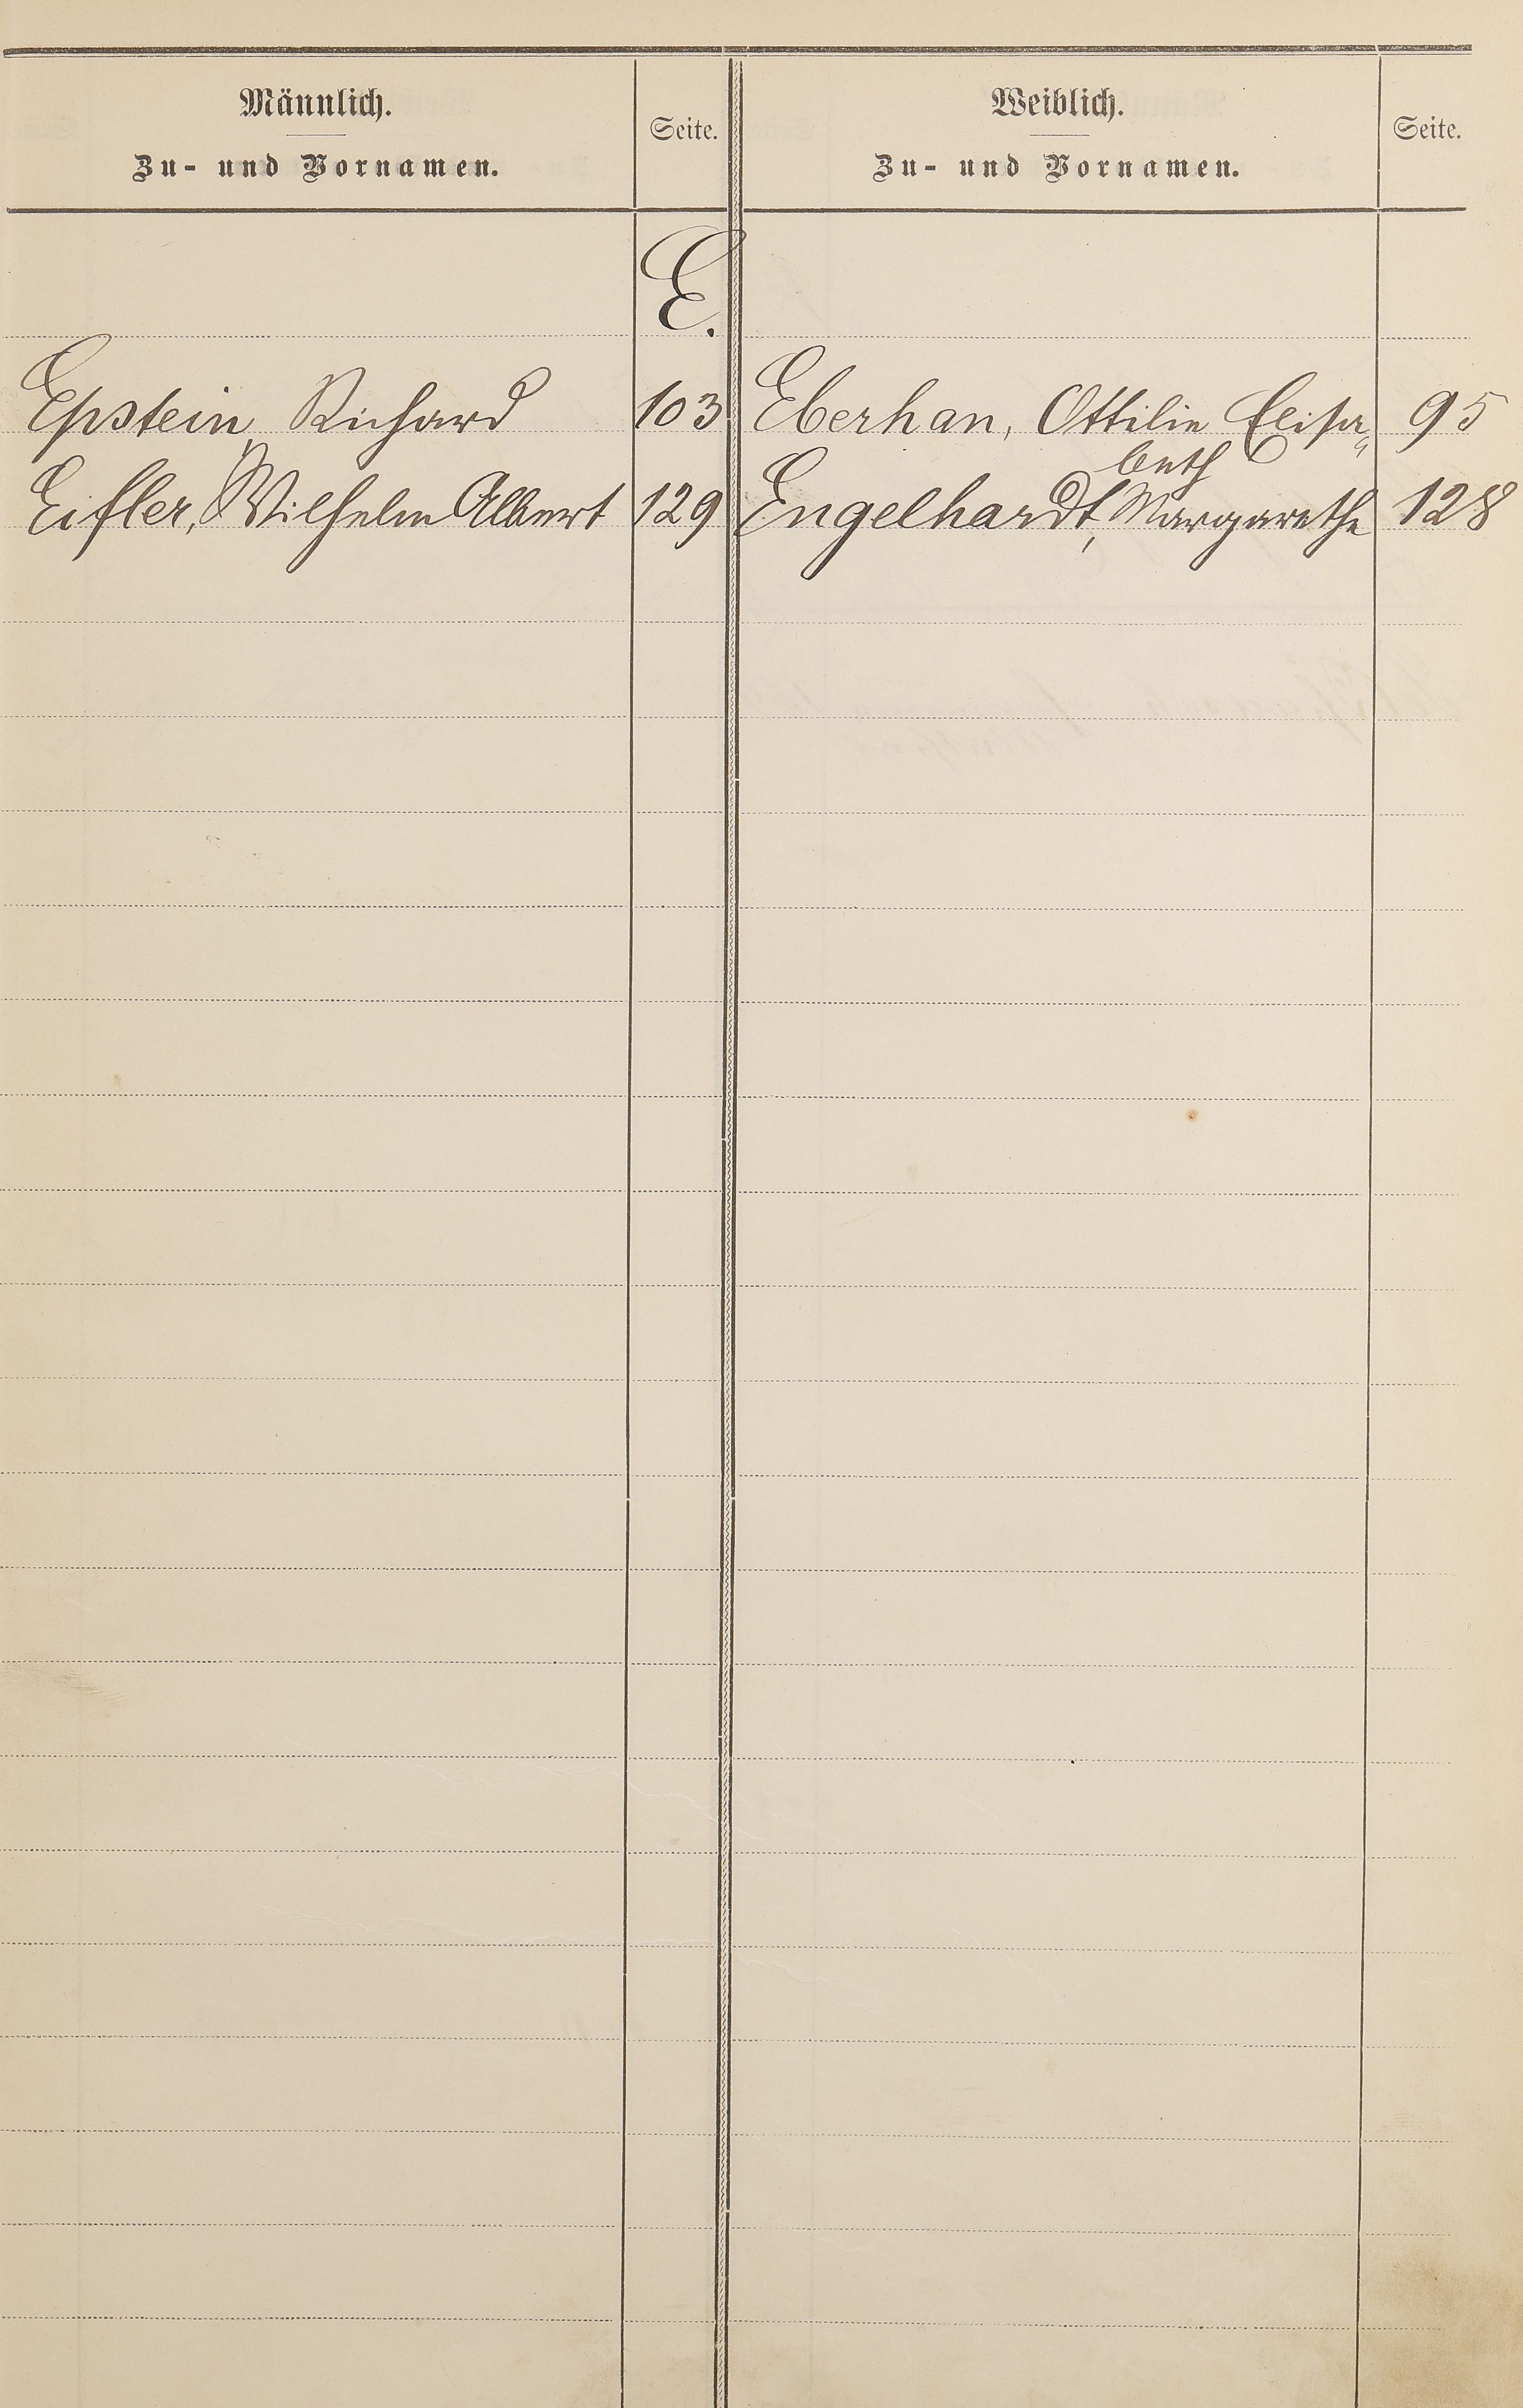 Männlich.
Zu- und Vornamen.
Seite.
Weiblich.
Zu- und Vornamen.
Seite.
E.
Epstein, Richard 103
Eberhan, Ottilie Elisa„ 95
beth
Eifler, Wilhelm Albert 129
Engelhardt, Margarethe 128